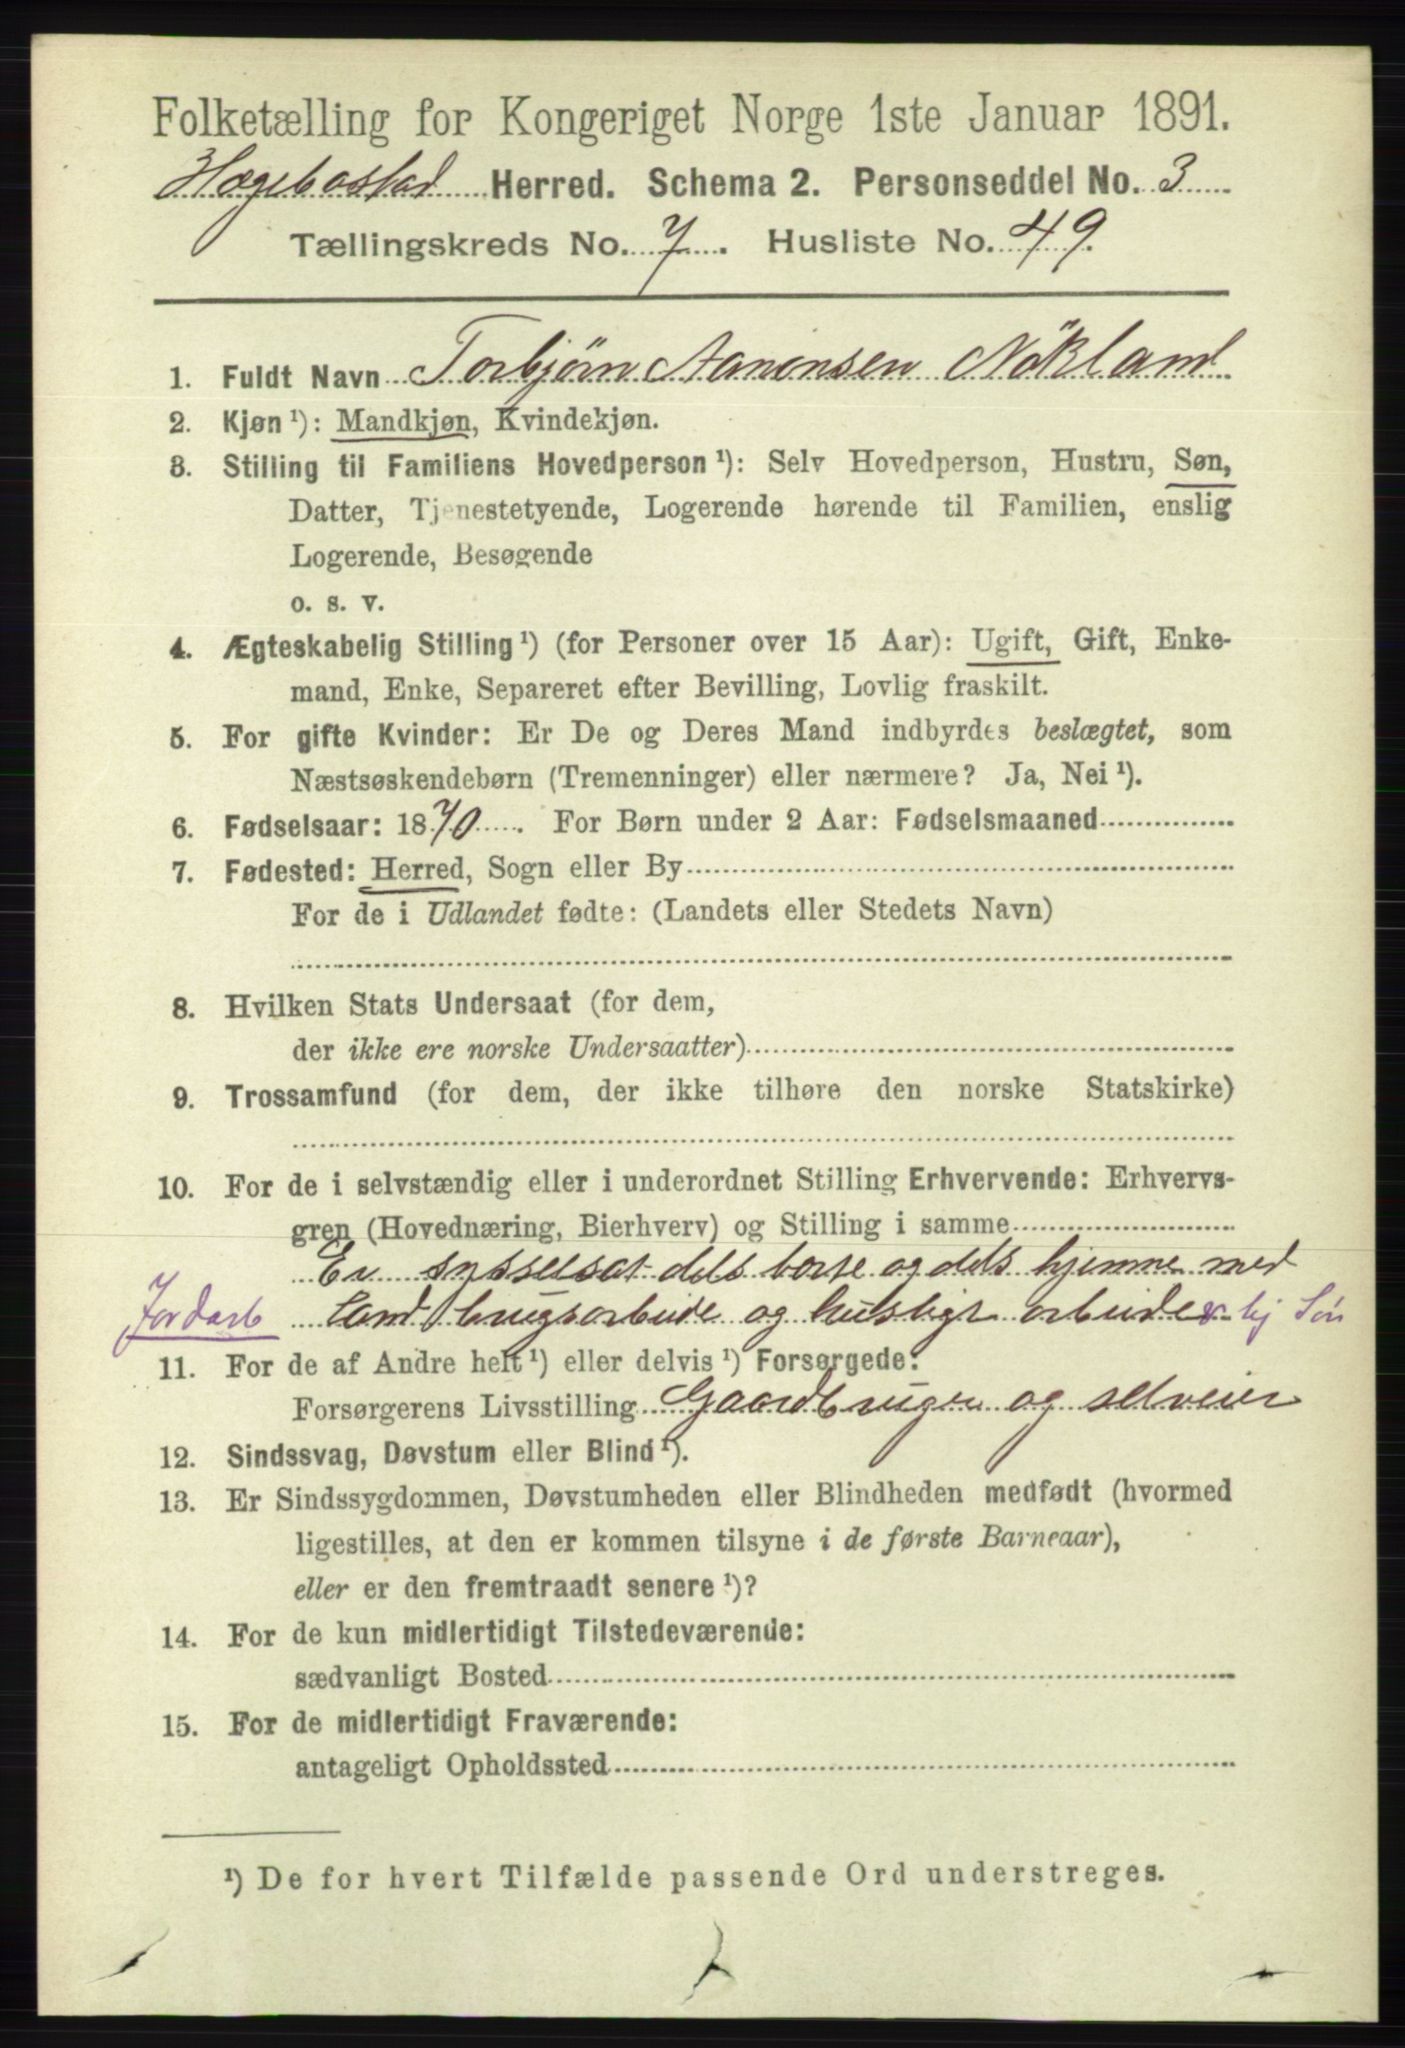 Folketælling for Kongeriget Norge 1ste Januar 1891.
Hægebostad Herred. Schema 2. Personseddel No. 3
Tællingskreds No. 7. Husliste No. 49.
1. Fuldt Navn Torbjørn Aanensen Nökland
2. Kjøn ¹): Mandkjøn, Kvindekjøn.
3. Stilling til Familiens Hovedperson ¹): Selv Hovedperson, Hustru, Søn,
Datter, Tjenestetyende, Logerende hørende til Familien, enslig
Logerende, Besøgende
o. s. v.
4. Ægteskabelig Stilling ¹) (for Personer over 15 Aar): Ugift, Gift, Enke-
mand, Enke, Separeret efter Bevilling, Lovlig fraskilt.
5. For gifte Kvinder: Er De og Deres Mand indbyrdes beslægtet, som
Næstsøskendebørn (Tremenninger) eller nærmere? Ja, Nei ¹).
6. Fødselsaar: 1870. For Børn under 2 Aar: Fødselsmaaned
7. Fødested: Herred, Sogn eller By
For de i Udlandet fødte: (Landets eller Stedets Navn)
8. Hvilken Stats Undersaat (for dem,
der ikke ere norske Undersaatter)
9. Trossamfund (for dem, der ikke tilhøre den norske Statskirke)
10. For de i selvstændig eller i underordnet Stilling Erhvervende: Erhvervs-
gren (Hovednæring, Bierhverv) og Stilling i samme
Er sysselsat dels borte og dels hjemme med
Jordarb Landbrugsarbeide og husligt arbeide hj Søn
11. For de af Andre helt ¹) eller delvis ¹) Forsørgede:
Forsørgerens Livsstilling Gaardbruger og selveier
12. Sindssvag, Døvstum eller Blind ¹).
13. Er Sindssygdommen, Døvstumheden eller Blindheden medfødt (hvormed
ligestilles, at den er kommen tilsyne i de første Barneaar),
eller er den fremtraadt senere ¹)?
14. For de kun midlertidigt Tilstedeværende:
sædvanligt Bosted
15. For de midlertidigt Fraværende:
antageligt Opholdssted
¹) De for hvert Tilfælde passende Ord understreges.